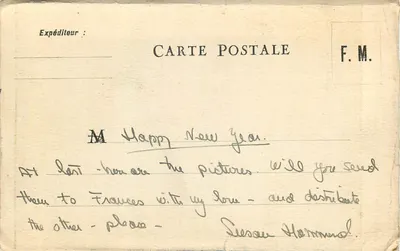 Expéditeur :
CARTE POSTALE
F. M.
M Happy New Year.
At last - here are the pictures. Will you send
them to Frances with my love - and distribute
the other - please - Susan Hammond.